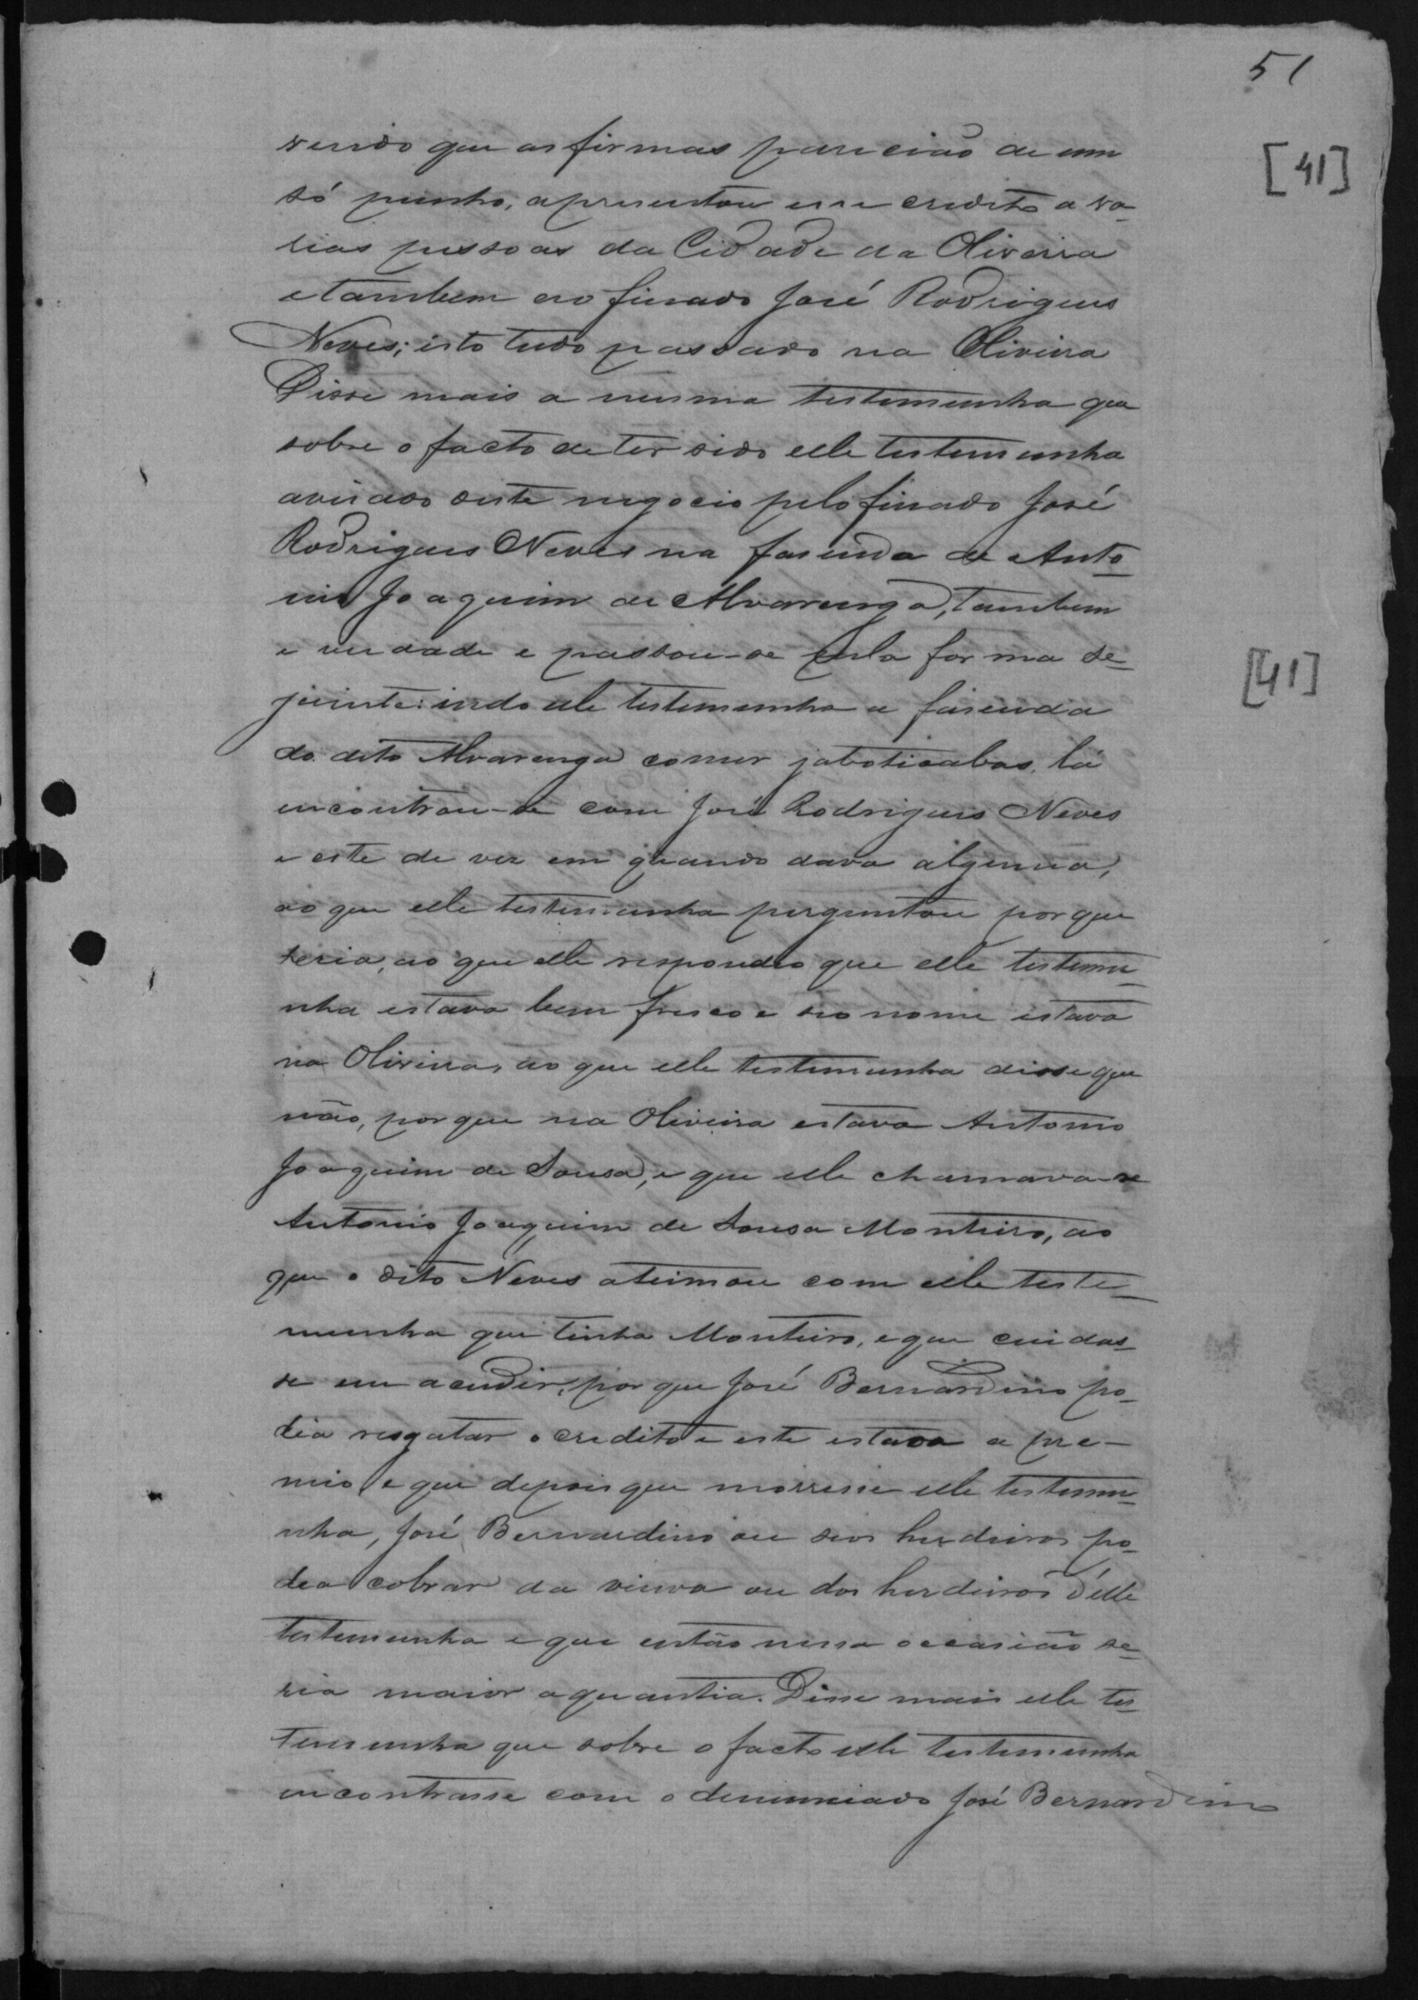 51
[41]
vendo que as firmas parecião de um
só punho, apresentou esse credito a va-
rias pessoas da Cidade da Oliveira
e tambem ao finado José Rodrigues
Neves; isto tudo passado na Oliveira
Disse mais a mesma testemunha que
sobre o facto de ter sido elle testemunha
avisado deste negocio pelo finado José
Rodrigues Neves na fasenda de Anto-
nio Joaquim de Alvarenga, tambem
e verdade e passou-se pela forma se-
[41]
guinte: indo elle testemunha a fasenda
do dito Alvarenga comer jaboticabas, lá
encontrou-se com José Rodrigues Neves
e este de vez em quando dava
ao que elle testemunha perguntou por que
seria, ao que elle respondeo que elle testemu-
nha estava bem fresco e seo nome estava
na Oliveira, ao que elle testemunha disse que
não, por que na Oliveira estava Antonio
Joaquim de Sousa, e que elle chamava-se
Antonio Joaquim de Sousa Monteiro, ao
que o dito Neves ateimou com elle teste-
munha que tinha Monteiro, e que cuidas-
se em acudir, por que José Bernardino po-
dia resgatar o credito e este estava a pre-
mio e que depois que morresse elle testemu-
nha, José Bernardino ou seos herdeiros po-
dia cobrar da viuva ou dos herdeiros d'elle
testemunha e que então nessa occasião se-
ria maior a quantia. Disse mais elle tes-
temunha que sobre o facto elle testemunha
encontrasse com o denunciado José Bernardino